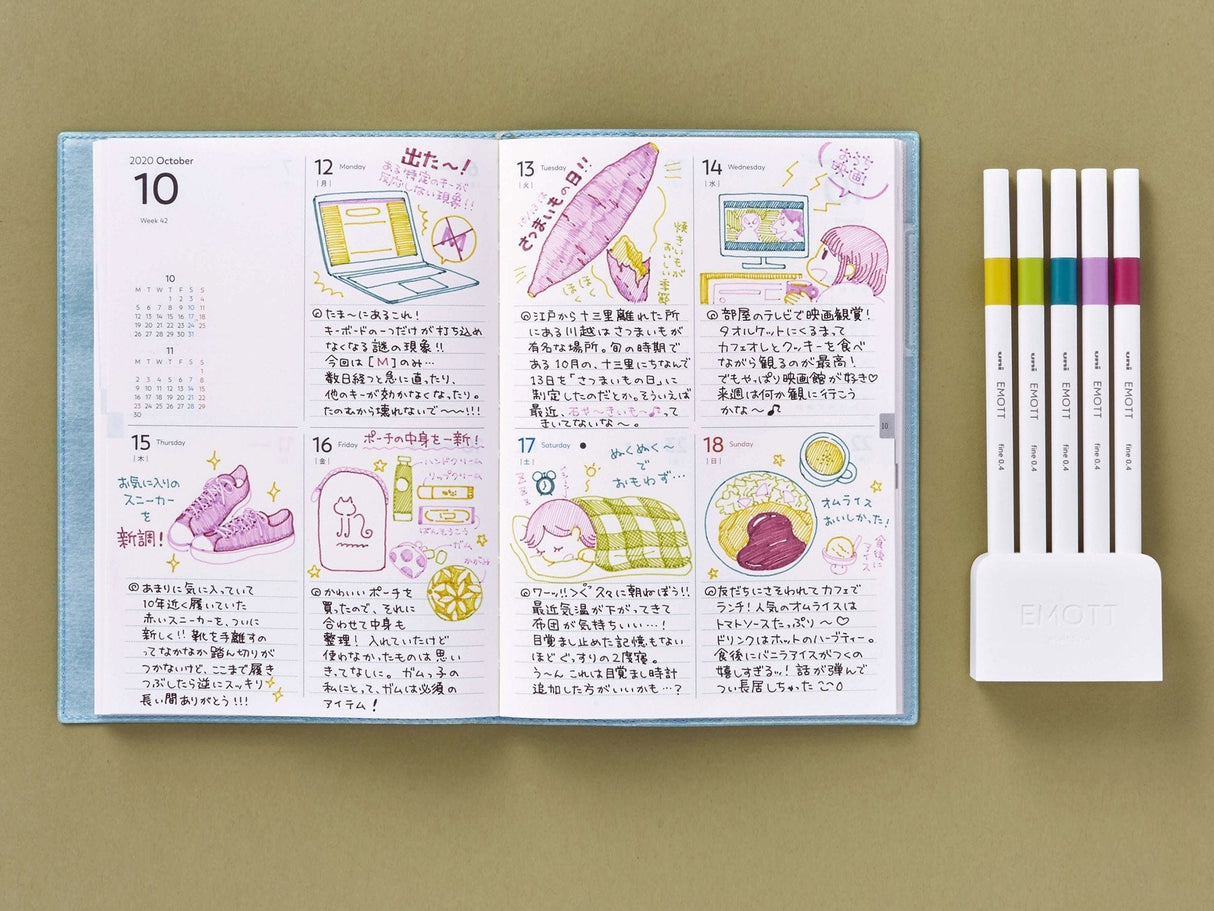 2020 October
10
Week 42
10
M T W T F S S
1 2 3 4
5 6 7 8 9 10 11
12 13 14 15 16 17 18
19 20 21 22 23 24 25
26 27 28 29 30 31
11
M T W T F S S
1
2 3 4 5 6 7 8
9 10 11 12 13 14 15
16 17 18 19 20 21 22
23 24 25 26 27 28 29
30
12 Monday
|月|
出た〜!
ある特定のキーが
反応しない現象!!
M
たま〜にあるこれ!
キーボードの一つだけが打ち込め
なくなる謎の現象!!
今回は[M]のみ…
数日経つと急に直ったり、
他のキーが効かなくなったり。
たのむから壊れないで〜〜!!!
13 Tuesday
|火|
さつまいもの日!!
焼きいもが
おいしい季節
ほく
ほく
江戸から十三里離れた所
にある川越はさつまいもが
有名な場所。旬の時期で
ある10月の、十三里にちなんで
13日を「さつまいもの日」に
制定したのだとか。そういえば
最近、石や〜きいも〜♪って
きいてないな〜。
14 Wednesday
|水|
おうち
映画!
部屋のテレビで映画観賞!
タオルケットにくるまって
カフェオレとクッキーを食べ
ながら観るのが最高!
でもやっぱり映画館が好き♡
来週は何か観に行こう
かな〜♪
10
15 Thursday
|木|
お気に入りの
スニーカー
を
新調!
あまりに気に入っていて
10年近く履いていた
赤いスニーカーを、ついに
新しく!!靴を手離すの
ってなかなか踏ん切りが
つかないけど、ここまで履き
つぶしたら逆にスッキリ
長い間ありがとう!!!
16 Friday
|金|
ポーチの中身を一新!
ハンドクリーム
リップクリーム
ばんそうこう
ガム
かがみ
かわいいポーチを
買ったので、それに
合わせて中身も
整理!入れていたけど
使わなかったものは思い
きってなしに。ガムっ子の
私にとって、ガムは必須の
アイテム!
17 Saturday
|土|
ぬくぬく〜
で
おもわず…
ワーッ!!>ぐ 久々に朝ねぼう!!
最近気温が下がってきて
布団が気持ちいい…!
目覚まし止めた記憶もない
ほどぐっすりの2度寝。
う〜んこれは目覚まし時計
追加した方がいいかも…?
18 Sunday
|日|
オムライス
おいしかった!
食後に
アイス
友だちにさそわれてカフェで
ランチ!人気のオムライスは
トマトソースたっぷり〜♡
ドリンクはホットのハーブティー。
食後にバニラアイスがつくの
嬉しすぎるッ!話が弾んで
つい長居しちゃった
uni EMOTT fine 0.4
uni EMOTT fine 0.4
uni EMOTT fine 0.4
uni EMOTT fine 0.4
uni EMOTT fine 0.4
EMOTT